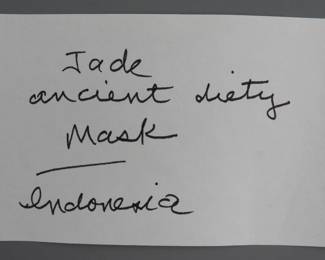 Jade
ancient diety
Mask
Indonesia